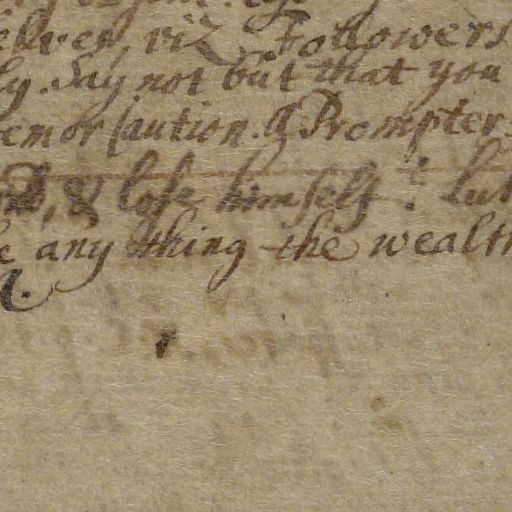 elves, viz Followers
ly. Say not but that you
em or Caution. A Prompter
, & lose himself: Luk
e any thing the wealth